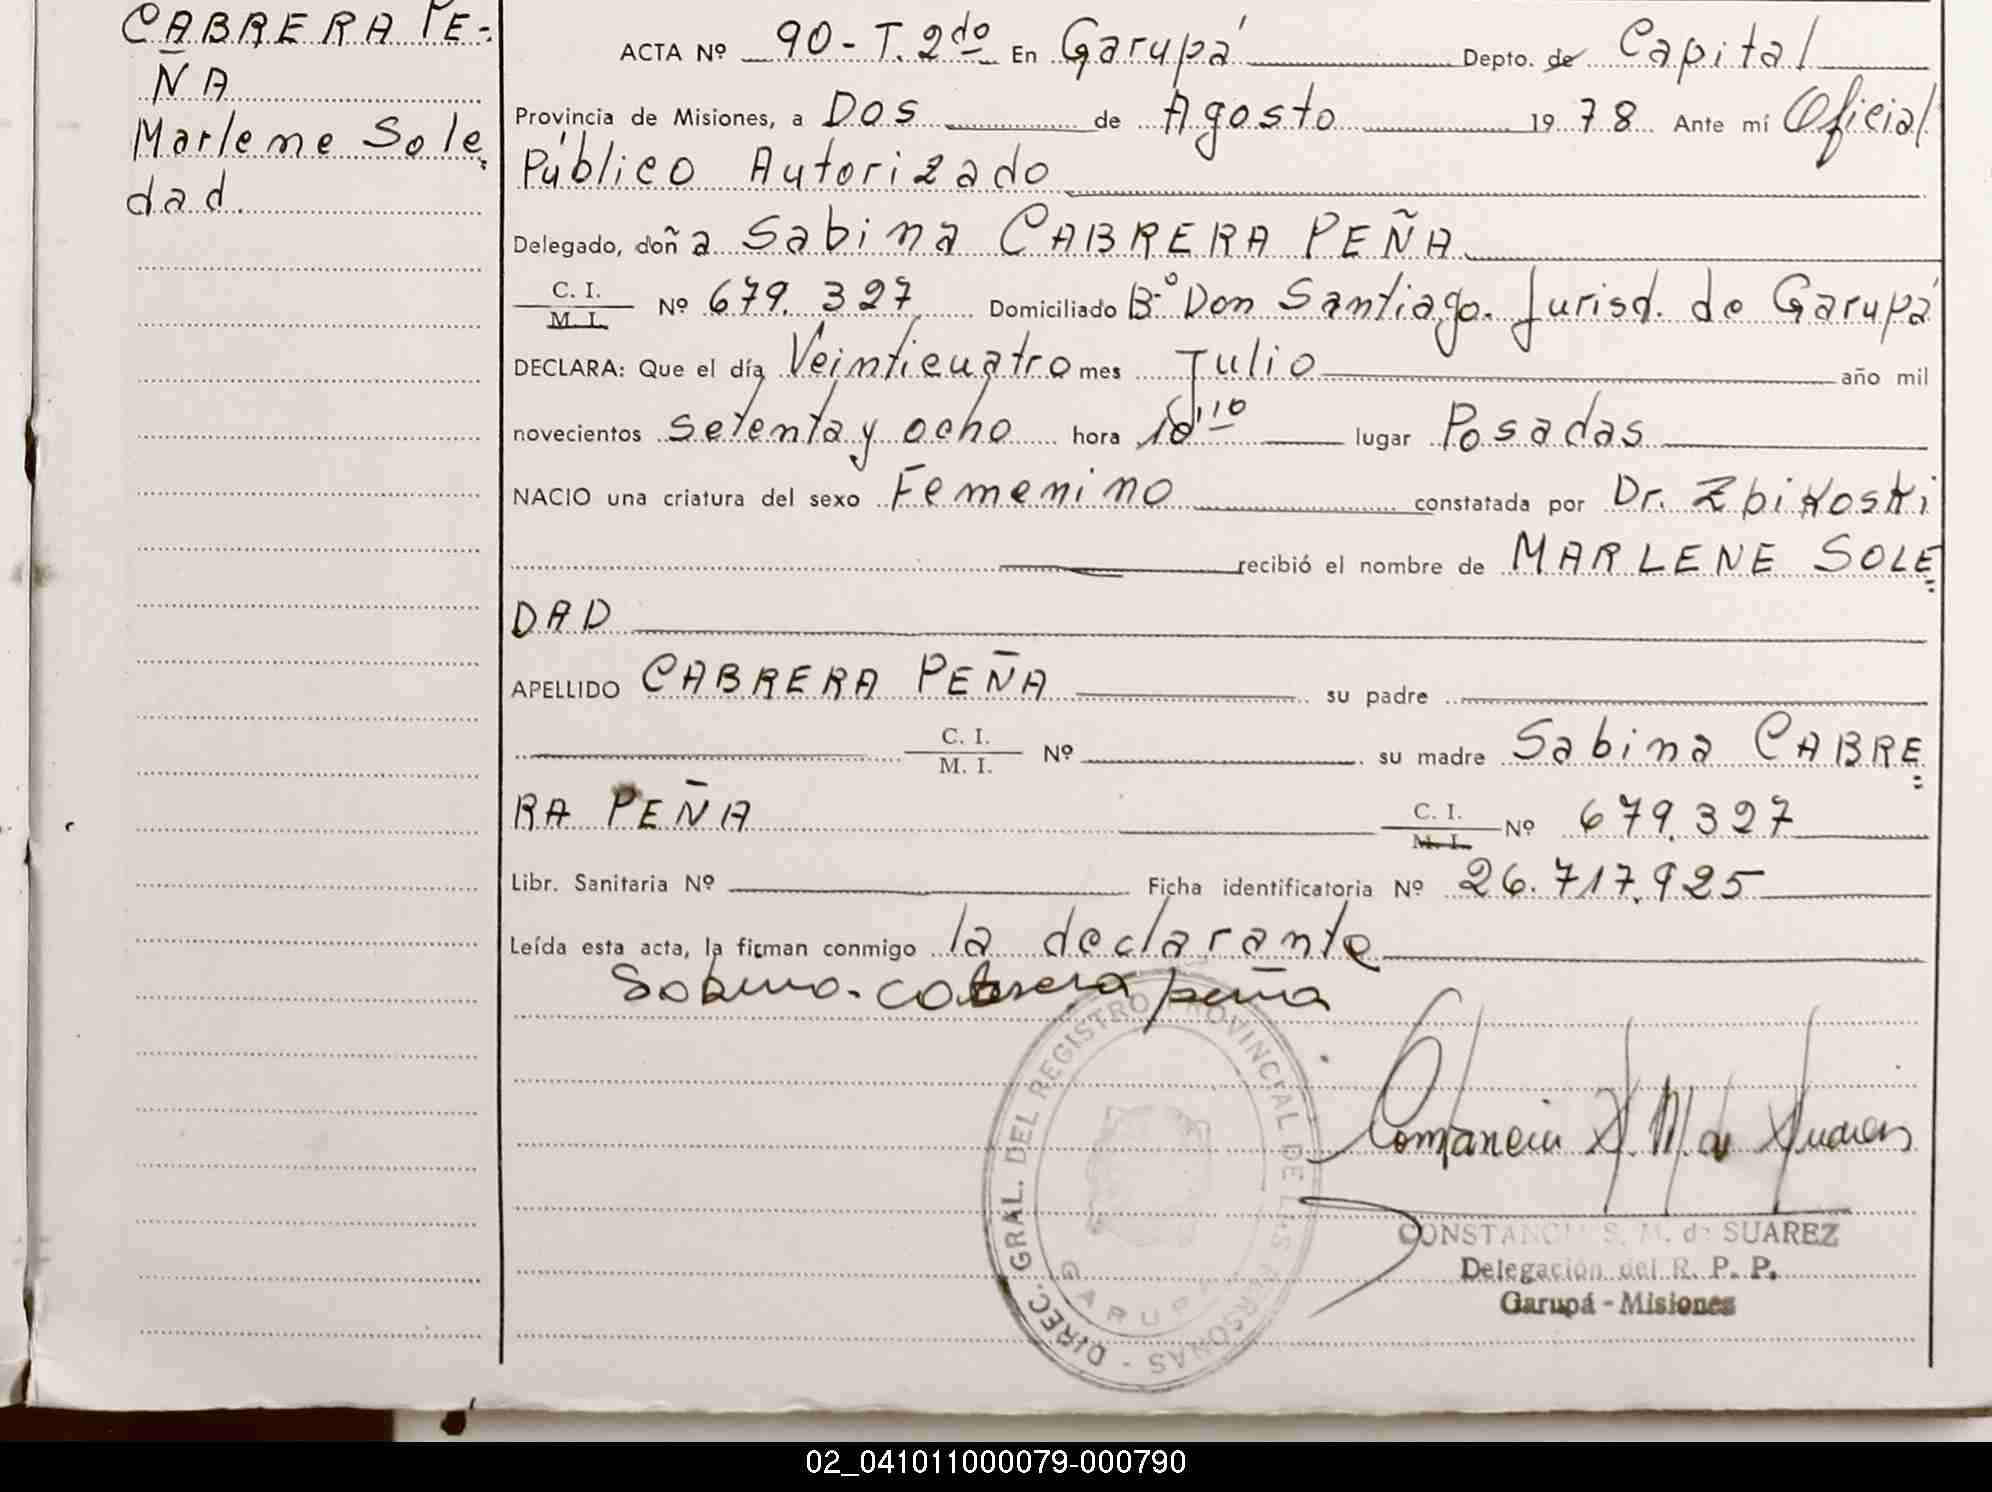 CABRERA PE-
ÑA
Marlene Sole
dad.
ACTA Nº 90-T.2do En Garupá Depto. de Capital
Provincia de Misiones, a Dos de Agosto 1978 Ante mí Oficial
Público Autorizado
Delegado, doña Sabina CABRERA PEÑA
C. I.
M. I. Nº 679.327 Domiciliado Bº Don Santiago. Jurisd. de Garupá
DECLARA: Que el día Veinticuatro mes Julio año mil
novecientos setenta y ocho hora lugar Posadas
NACIO una criatura del sexo Femenino constatada por Dr. Zbikoski
recibió el nombre de MARLENE SOLE
DAD
APELLIDO CABRERA PEÑA su padre
C. I.
M. I. Nº su madre Sabina CABRE
RA PEÑA C. I.
M. I. Nº 679.327
Libr. Sanitaria Nº Ficha identificatoria Nº 26.717.925
Leída esta acta, la firman conmigo la declarante
Sabina. cabrera peña
DIREC. GRAL. DEL REGISTRO PROVINCIAL DE LAS PERSONAS -
GARUPA
CONSTANCIA S. M. de SUAREZ
Delegación del R. P. P.
Garupá - Misiones
02_041011000079-000790